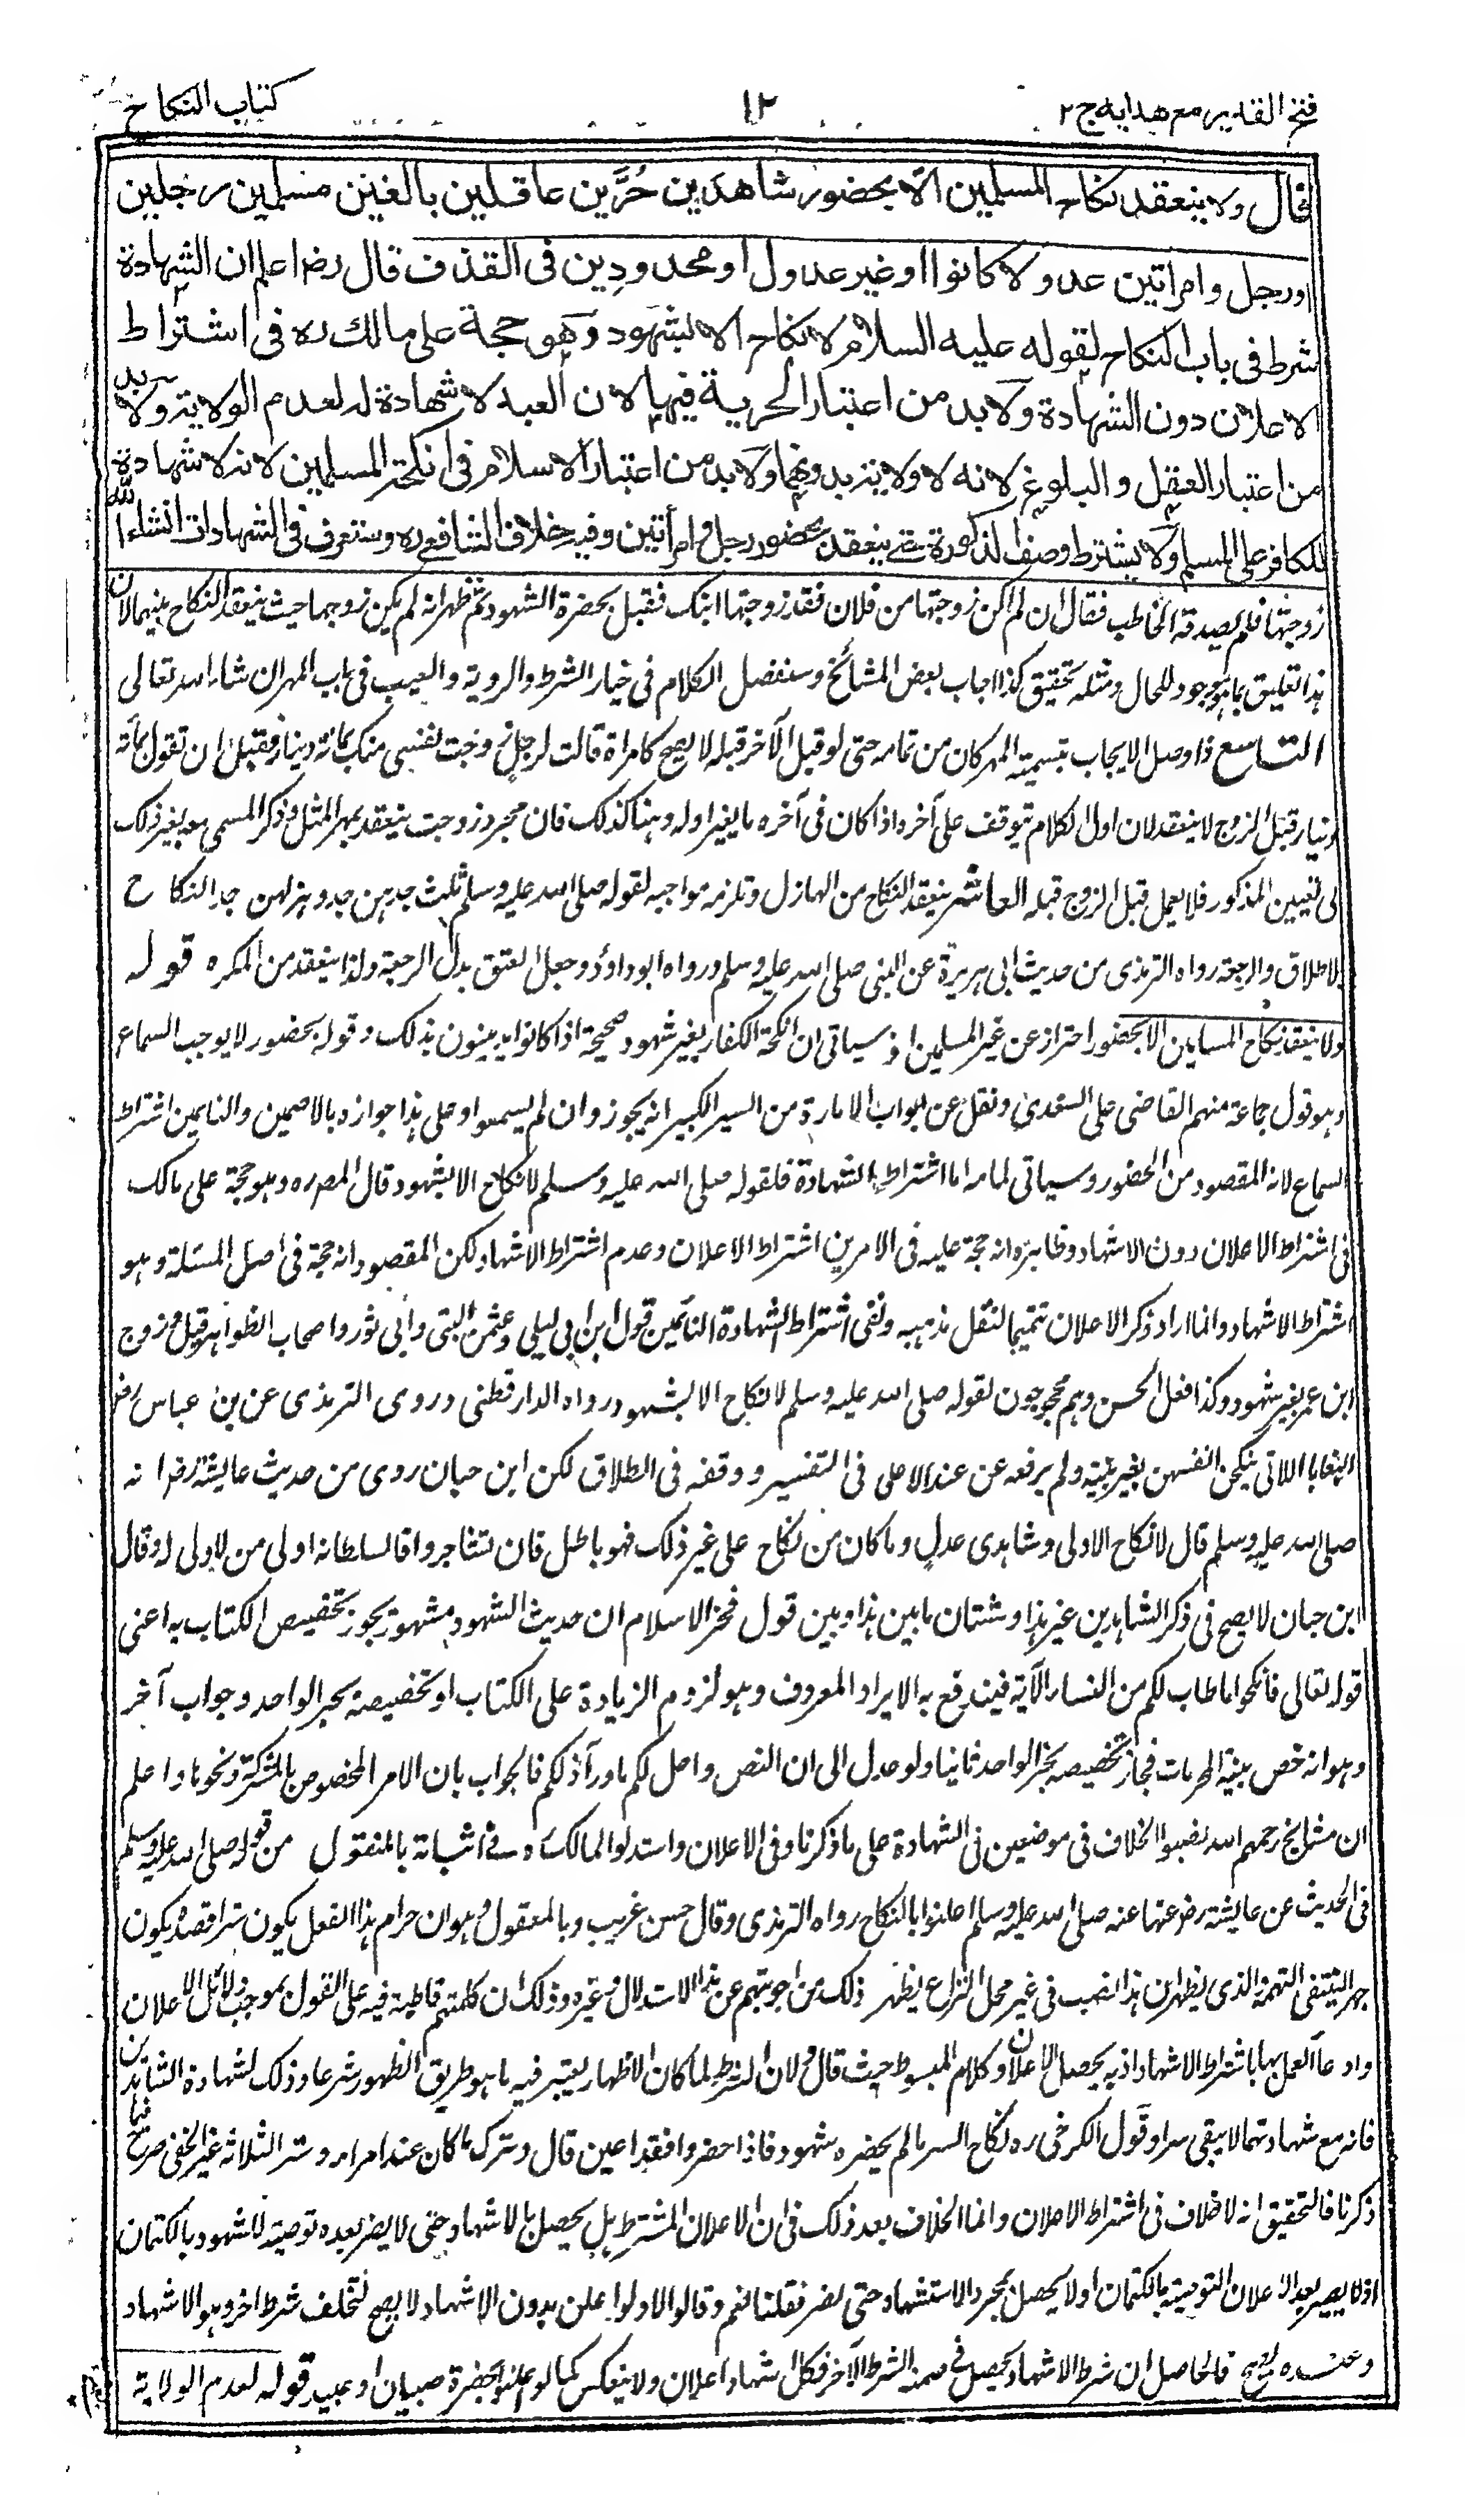 فتح القدير مع هدايه ج ٢
١٢
كتاب النكاح
قال ولا ينعقد نكاح المسلمين الا بحضور شاهدين حُرَّين عاقلين بالغين مسلمين رجلين
اورجل وامراتين عدولا كانوا اوغير عدول او محدودِين فى القذف قال رض اعلم ان الشهادة
شرط فى باب النكاح لقوله عليه السلام لا نكاح الا بشهود وهو حجة على مالك ره فى اشتراط
الاعلان دون الشهادة ولابد من اعتبار الحرية فيها لان العبد لا شهادة له لعدم الولاية ولابد
من اعتبار العقل والبلوغ لانه لا ولاية بدونهما ولابد من اعتبار الاسلام فى انكحة المسلمين لانه لا شهادة
للكافر على المسلم ولا يشترط وصف الذكورة حتے ينعقد بحضور رجل وامرأتين وفيه خلاف الشافعے ره وستعرف فى الشهادات انشاء الله
زوجتها فلم يصدقه الخاطب فقال ان لم اكن زوجتها من فلان فقد زوجتها ابنك فقبل بحضرة الشهود ثم ظهر انه لم يكن زوجها حيث ينعقد النكاح بينهما لان
هذا تعليق بما هو موجود للحال ومثله تحقيق كذا اجاب بعض المشائخ وسنفصل الكلام فى خيار الشرط والروية والعيب فى باب المهر ان شاء الله تعالى
التاسع اذا وصل الايجاب بتسمية المهر كان من تمامه حتى لو قبل الآخر قبله لا يصح كامراة قالت لرجل زوجت نفسى منك بمائة دينار فقبل ان تقول بمائة
دينار قبل الزوج لا ينعقد لان اول الكلام يتوقف على آخره اذا كان فى آخره ما يغير اوله وهنا كذلك فان مجرد زوجت ينعقد بمهر المثل وذكر المسمى معه يغير ذلك
الى تعيين المذكور فلا يعمل قبل الزوج قبله العاشر ينعقد النكاح من الهازل وتلزمه مواجبه لقوله صلى الله عليه وسلم ثلث جدهن جد وهزلهن جد النكاح
والطلاق والرجعة رواه الترمذى من حديث ابى هريرة عن النبى صلى الله عليه وسلم ورواه ابو داؤد وجعل العتق بدل الرجعة ولذا ينعقد من المكره قوله
ولا ينعقد نكاح المسلمين الا بحضور احتراز عن غير المسلمين اذ سياتى ان انكحة الكفار بغير شهود صحيحة اذا كانوا يدينون بذلك وقوله بحضور لا يوجب السماع
وهو قول جماعة منهم القاضى على السغدى ونقل عن ابواب الامارة من السير الكبير انه يجوز وان لم يسمعوا وعلى هذا جوازه بالاصمين والنايمين اشتراط
السماع لانه المقصود من الحضور وسياتى تمامه اما اشتراط الشهادة فلقوله صلى الله عليه وسلم لا نكاح الا بشهود قال المصره وهو حجة على مالك
فى اشتراط الاعلان دون الاشهاد وظاهره انه حجة عليه فى الامرين اشتراط الاعلان وعدم اشتراط الاشهاد لكن المقصود انه حجة فى اصل المسئلة وهو
اشتراط الاشهاد وانما اراد ذكر الاعلان تتميما لنقل مذهبه ونفى اشتراط الشهادة النائمين قول ابن ابى ليلى وعثمن البتى وابى ثور واصحاب الظواهر قيل وزوج
ابن عمر بغير شهود وكذا فعل الحسن وهم محجوجون لقوله صلى الله عليه وسلم لا نكاح الا بشهود رواه الدارقطنى وروى الترمذى عن بن عباس رض
البغايا اللاتى ينكحن انفسهن بغير بينة ولم يرفعه عن عبد الاعلى فى التفسير ووقفه فى الطلاق لكن ابن حبان روى من حديث عايشة رض انه
صلى الله عليه وسلم قال لا نكاح الا ولى وشاهدى عدل وما كان من نكاح على غير ذلك فهو باطل فان تشاجروا فالسلطانه اولى من لا ولى له وقال
ابن حبان لا يصح فى ذكر الشاهدين غير هذا وشتان ما بين هذا وبين قول فخر الاسلام ان حديث الشهود مشهور يجوز تخصيص الكتاب به اعنى
قوله تعالى فانكحوا ما طاب لكم من النساء الآية فيندفع به الايراد المعروف وهو لزوم الزيادة على الكتاب او تخصيصه بخبر الواحد وجواب آخر
وهو انه خص ببينة المحرمات فجاز تخصيصه بخبر الواحد ثانيا ولو عدل الى ان النص واحل لكم ما ورآء ذلكم فالجواب بان الامر المخصوص بالمشركة ونحوها واعلم
ان مشايخ رحمهم الله نصبوا الخلاف فى موضعين فى الشهادة على ما ذكرنا وفى الاعلان واستدلوا لمالك ره فے اثباته بالمنقول من قوله صلى الله عليه وسلم
فى الحديث عن عايشة رض عنها عنه صلى الله عليه وسلم اعلنوا بالنكاح رواه الترمذى وقال حسن غريب وبالمعقول وهو ان حرام هذا الفعل يكون سرا فضده يكون
جهر التنتفى التهمة الذى يظهر ان هذا نصب فى غير محل النزاع يظهر ذلك من اجوبتهم عن هذا الاستدلال وغيره وذلك ان كلمتهم قاطبة فيه على القول بموجب دلائل الاعلان
وادعآء العمل بها باشتراط الاشهاد اذ به يحصل الاعلان وكلام المبسوط حيث قال ولان الشرط لما كان الاظهار يعتبر فيه ما هو طريق الظهور شرعا وذلك لشهادة الشاهدين
فانه مع شهادتهما لا يبقى سرا وقول الكرخى ره نكاح السر ما لم يحضره شهود فاذا حضروا فقد اعلن قال وسرك ما كان عند امرئ وسر الثلاثة غير الخفى صريح فيما
ذكرنا فالتحقيق انه لا خلاف فى اشتراط الاعلان وانما الخلاف بعد ذلك فى ان الاعلان المشترط هل يحصل بالاشهاد حتى لا يضر بعده توصية للشهود بالكتمان
اذ لا يضر بعد الاعلان التوصية بالكتمان او لا يحصل بمجرد الاستشهاد حتى يضر فقلنا نعم وقالوا لا ولو اعلن بدون الاشهاد لا يصح لتخلف شرط اخر وهو الاشهاد
وعنده يصح فالحاصل ان شرط الاشهاد يحصل فى ضمنه الشرط الآخر فكل اشهاد اعلان ولا ينعكس كما لو اعلنوا بحضرة صبيان او عبيد قوله لعدم الولاية